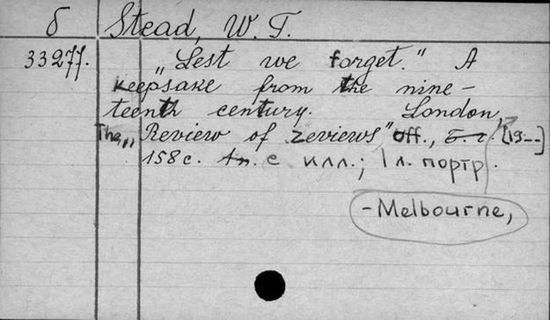 б Stead, W. T.
33277. „Lest we forget." A
keepsake from the nine-
teenth century. London,
The „Review of reviews" off., [19--]
158 с. с илл.; 1 л. портр.
- Melbourne,